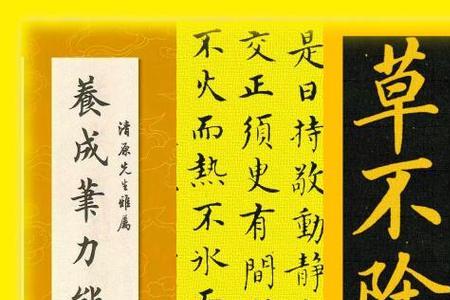 草不除
是曰持敬動靜
交正須臾有間
不火而熱不氷而
清原先生雅属
養成筆力能